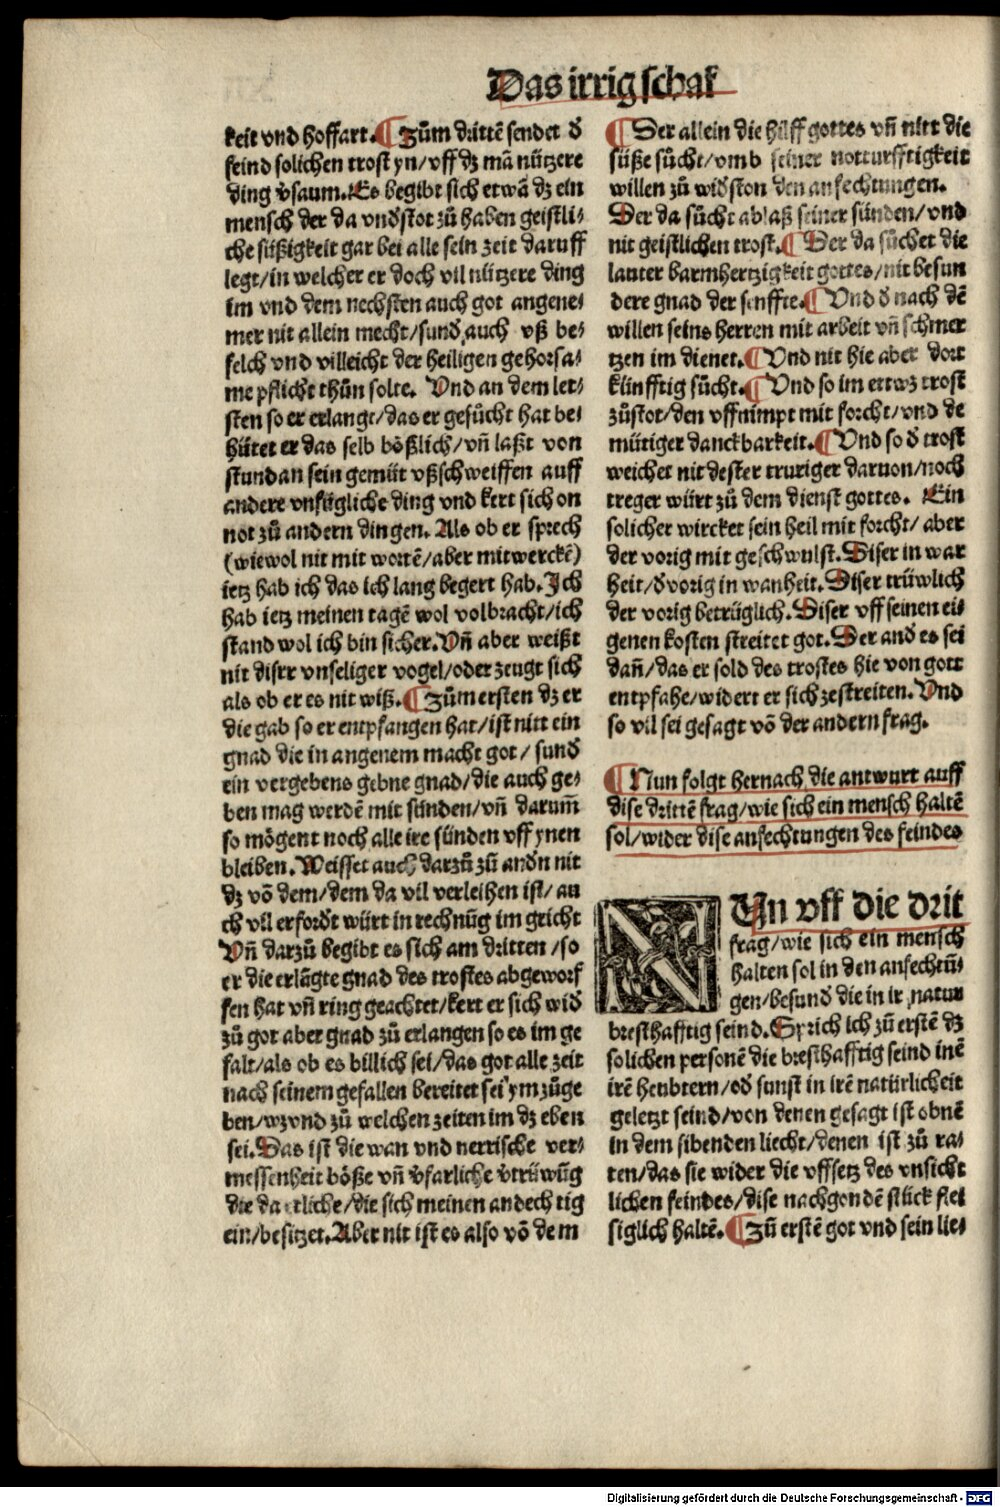 Das irrig schaf
keit vnd hoffart. ¶ Zům drittẽ sendet đ
feind solichen trost yn/vff dz mã nützere
ding v̉saum. Es begibt sich etwã dz ein
mensch der da vndstot zů haben geistli-
che süßigkeit gar bei alle sein zeit daruff
legt/in welcher er doch vil nützere ding
im vnd dem nechsten auch got angene-
mer nit allein mecht/sunđ auch vß be-
felch vnd villeicht der heiligen gehorsa-
me pflicht thůn solte. Vnd an dem let-
sten so er erlangt/das er gesůcht hat be-
hütet er das selb bößlich/vñ laßt von
stundan sein gemüt vßschweiffen auff
andere vnfügliche ding vnd kert sich on
not zů andern dingen. Als ob er sprech
(wiewol nit mit wortẽ/aber mit werckẽ)
ietz hab ich das ich lang begert hab. Ich
hab ietz meinen tagẽ wol volbracht/ich
stand wol ich bin sicher. Vñ aber weißt
nit disrr vnseliger vogel/oder zeugt sich
als ob er es nit wiß. ¶ Zům ersten dz er
die gab so er entpfangen hat/ist nitt ein
gnad die in angenem macht got/sunđ
ein vergebens gebne gnad/die auch ge-
ben mag werdẽ mit sünden/vñ darum̃
so mögent noch alle ire sünden vff ynen
bleiben. Weisset auch darzů zů andn nit
dz võ dem/dem da vil verleihen ist/au
ch vil erfordt würt in rechnũg im gricht
Vñ darzů begibt es sich am dritten/so
er die erlãgte gnad des trostes abgeworf
fen hat vñ ring geachtet/kert er sich wiđ
zů got aber gnad zů erlangen so es im ge
falt/als ob es billich sei/das got alle zeit
nach seinem gefallen bereitet sei ym zůge
ben/wz vnd zů welchen zeiten im dz eben
sei. Das ist die wan vnd nerrische ver-
messenheit böße vñ v̉farliche v̉trüwũg
die da etliche/die sich meinen andechtig
ein/besitzet. Aber nit ist es also võ dem
¶ Der allein die hilff gottes vñ nitt die
süße sücht/vmb seiner notturfftigkeit
willen zů widston den anfechtungen.
Der da sücht ablaß seiner sünden/vnd
nit geistlichen trost. ¶ Der da süchet die
lauter barmhertzigkeit gottes/nit besun
dere gnad der senffte. ¶ Vnd đ nach dẽ
willen seins herren mit arbeit vñ schmer
tzen im dienet. ¶ Vnd nit hie aber dort
künfftig sücht. ¶ Vnd so im ettwz trost
zůstot/den vffnimpt mit forcht/vnd de
mütiger danckbarkeit. ¶ Vnd so đ trost
weichet nit dester truriger daruon/noch
treger würt zů dem dienst gottes. Ein
solicher wircket sein heil mit forcht/aber
der vorig mit geschwulst. Diser in war
heit/đ vorig in wanheit. Diser trüwlich
der vorig betrüglich. Diser vff seinen ei-
genen kosten streitet got. Der and es sei
dañ/das er sold des trostes hie von gott
entpfahe/widert er sich ze streiten. Vnd
so vil sei gesagt võ der andern frag.
¶ Nun folgt hernach die antwurt auff
dise drittẽ frag/wie sich ein mensch haltẽ
sol/wider dise anfechtungen des feindes
NUn vff die drit
frag/wie sich ein mensch
halten sol in den anfechtũ-
gen/besunđ die in ir natur
bresthafftig seind. Sprich ich zů erstẽ dz
solichen personẽ die bresthafftig seind inẽ
irẽ heubtern/ođ sunst in irẽ natürlicheit
geletzt seind/von denen gesagt ist obnẽ
in dem sibenden liecht/denen ist zů ra-
ten/das sie wider die vffsetz des vnsicht
lichen feindes/dise nachgondẽ stück flei
siglich haltẽ. ¶ Zů erstẽ got vnd sein lie-
Digitalisierung gefördert durch die Deutsche Forschungsgemeinschaft - DFG